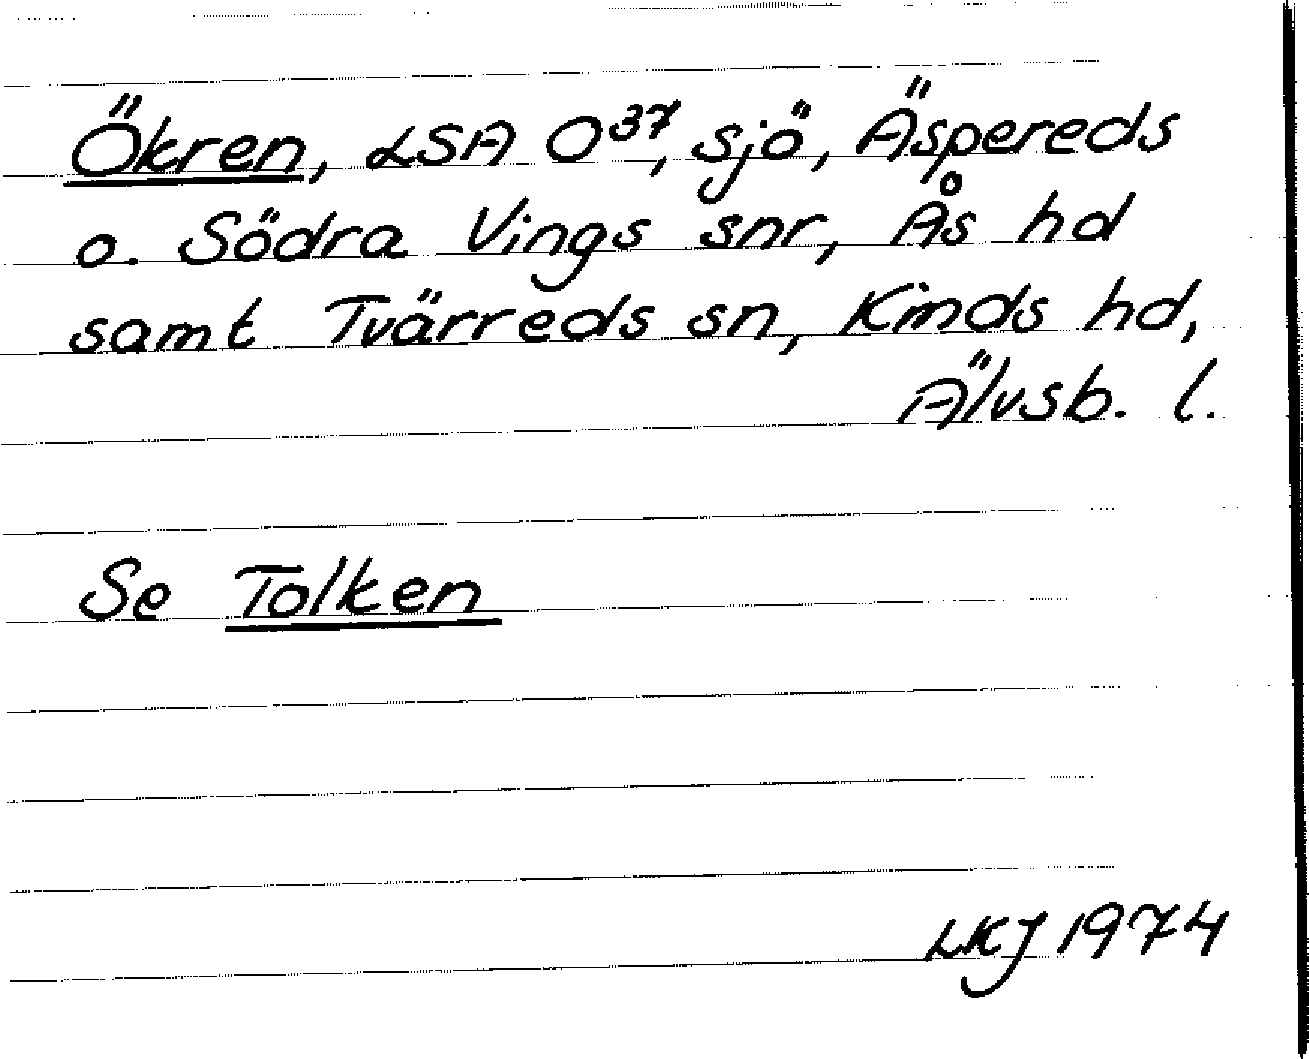 Ökren, LSA O³⁷, sjö, Äspereds
o. Södra Vings snr, Ås hd
samt Tvärreds sn, Kinds hd,
Älvsb. l.
Se Tolken
LKJ 1974